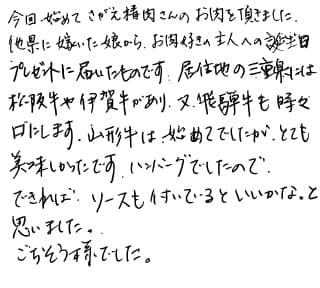 今回始めて さがえ精肉さんの お肉を頂きました.
他県に嫁いた娘から、お肉好きの主人への誕生日
プレゼントに届いたものです. 居住地の三重県には
松阪牛や伊賀牛があり、又、飛騨牛も時々
口にします. 山形牛は、始めてでしたが、とても
美味しかったです. ハンバーグでしたので、
できれば、ソースも付いているといいかな。と
思いました。
ごちそう様でした。